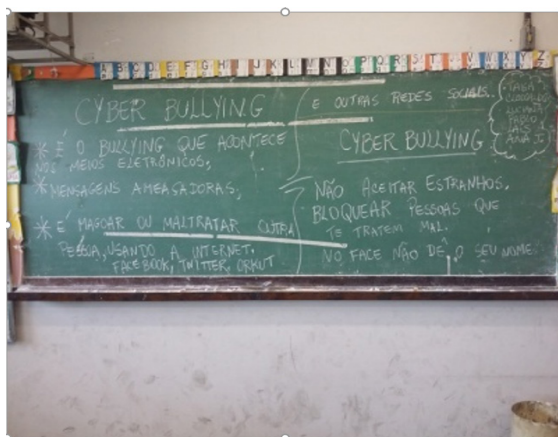 A B C D E F G H I J K L M N O P Q R S T
CYBER BULLYING
* É O BULLYING QUE ACONTECE
NOS MEIOS ELETRÔNICOS;
* MENSAGENS AMEAÇADORAS;
* É MAGOAR OU MALTRATAR OUTRA
PESSOA, USANDO A INTERNET.
FACEBOOK, TWITTER, ORKUT
E OUTRAS REDES SOCIAIS.
CYBER BULLYING
NÃO ACEITAR ESTRANHOS.
BLOQUEAR PESSOAS QUE
TE TRATEM MAL.
NO FACE NÃO DÊ O SEU NOME.